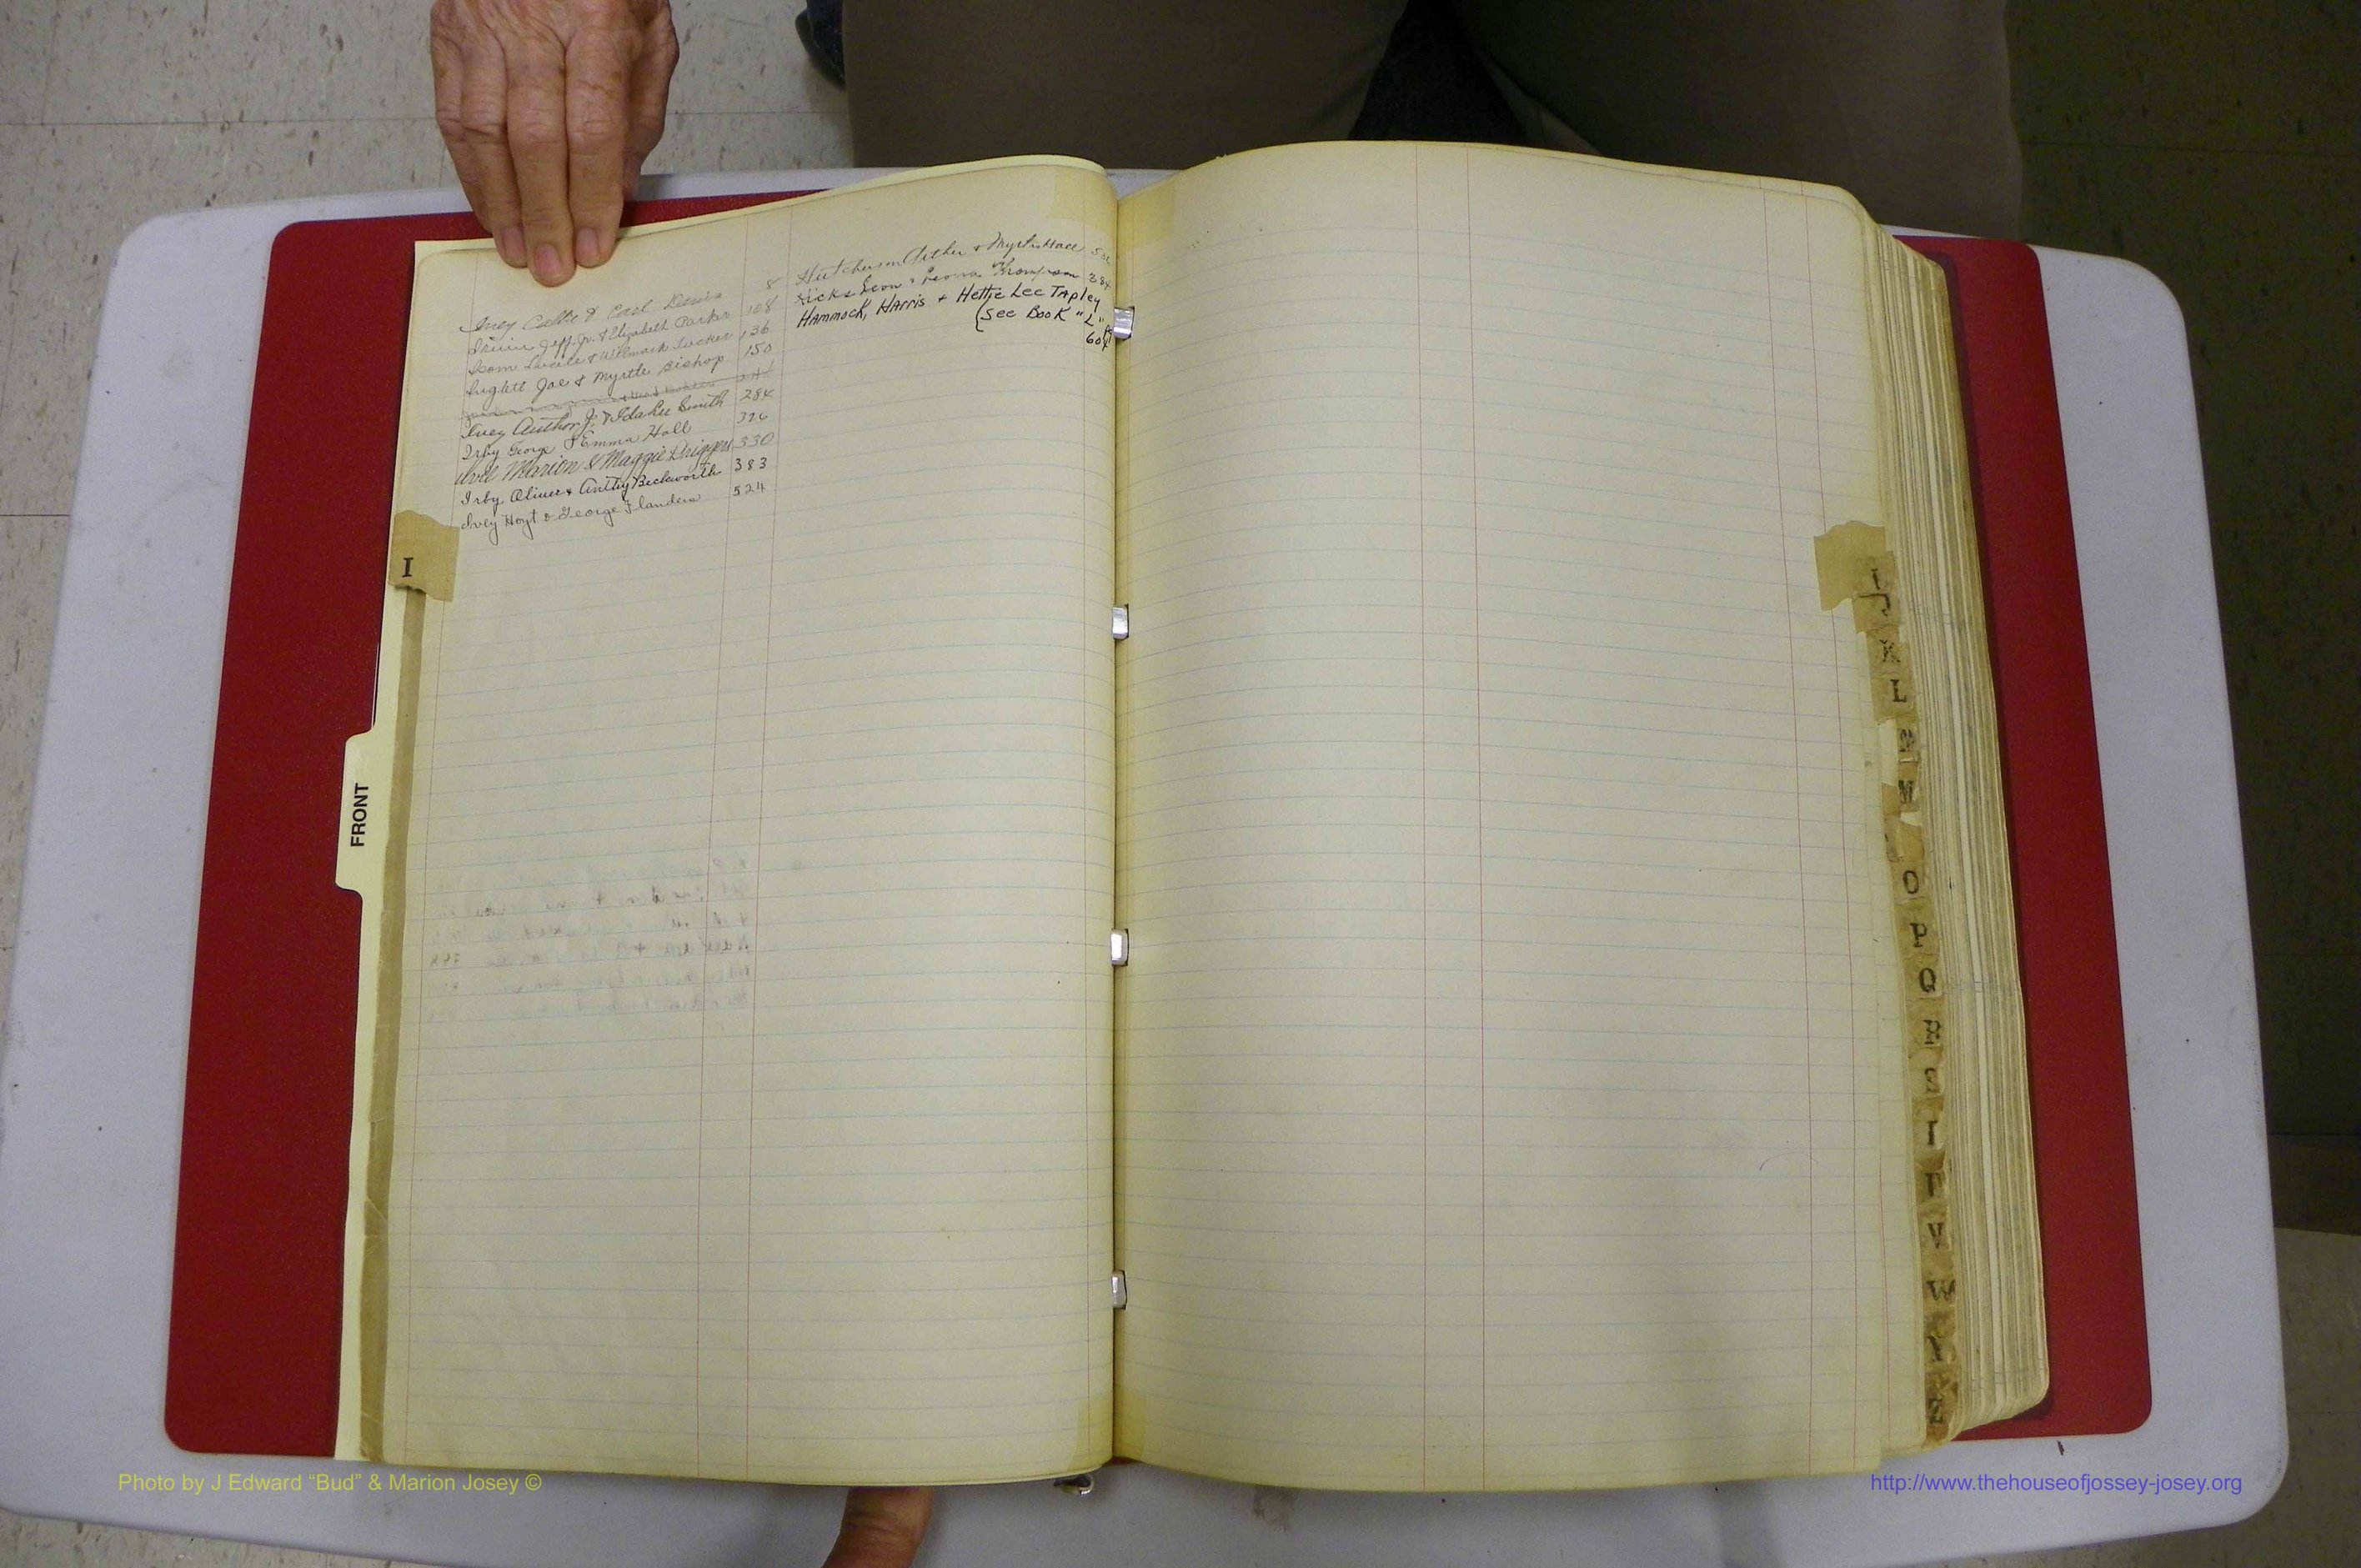 Ivey Callie & Earl Davis 8
Irwin Jeff. Jr. & Elizabeth Parker 108
Isom Lucile & Wilmach Tucker 136
Inglett Joe & Myrtle Bishop 150
Ivey Author J. & Ida Lee Smith 284
Irby George & Emma Hall 326
Marion & Maggie Driggers 330
Irby, Oliver & Beckworth 383
Ivey Hoyt & George Flanders 524
Hutcheson Arther & Myrtis Hall
Hicks Leon & Leona Thompson 384
HAMMOCK, HARRIS + Hettie Lee TAPley
(See BOOK "L"
60
I
FRONT
I
J
K
L
M
O
P
Q
R
S
T
V
W
Photo by J Edward “Bud” & Marion Josey ©
http://www.thehouseofjossey-josey.org